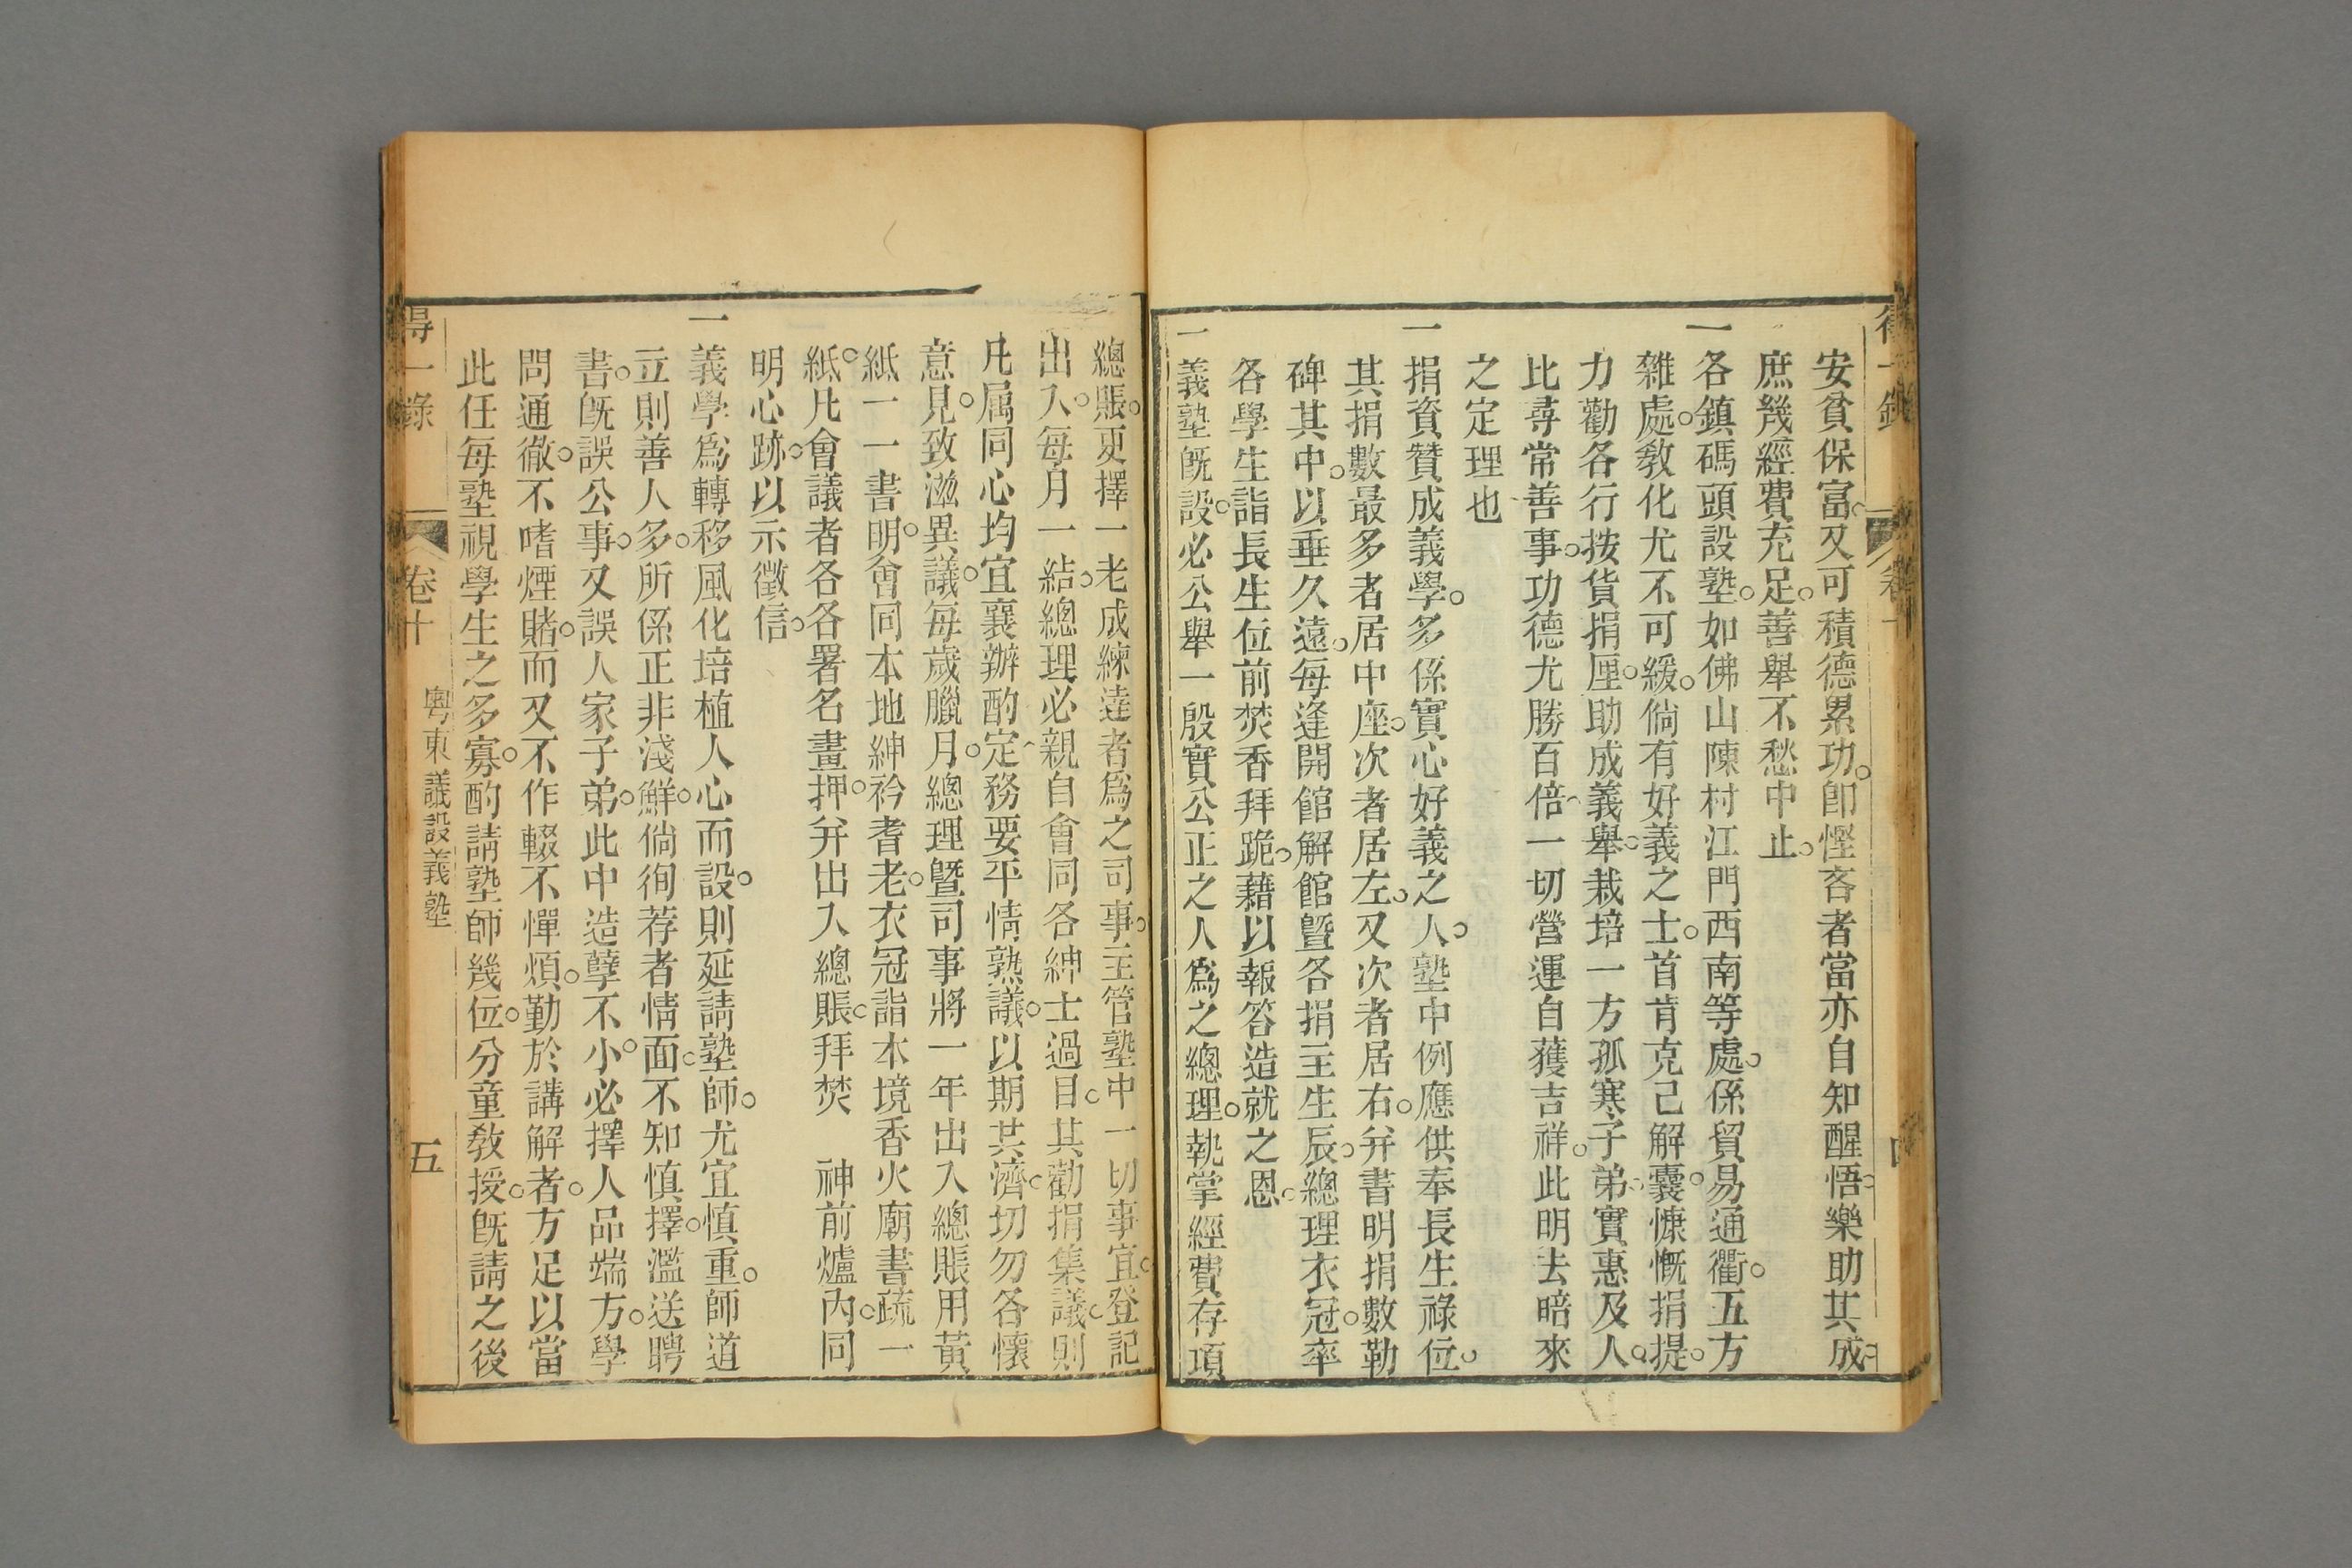 得一錄 卷十 四
安貧保富。又可積德累功。卽慳吝者當亦自知醒悟。樂助其成。
庶幾經費充足。善舉不愁中止。
一各鎮碼頭設塾。如佛山陳村江門西南等處。係貿易通衢。五方
雜處。敎化尤不可緩。倘有好義之士。首肯克己解囊。慷慨捐提。
力勸各行按貨捐厘。助成義舉。栽培一方孤寒子弟。實惠及人。
比尋常善事。功德尤勝百倍。一切營運自獲吉祥。此明去暗來
之定理也
一捐資贊成義學。多係實心好義之人。塾中例應供奉長生祿位。
其捐數最多者居中座。次者居左。又次者居右。并書明捐數勒
碑其中。以垂久遠。每逢開館解館曁各捐主生辰。總理衣冠。率
各學生詣長生位前焚香拜跪。藉以報答造就之恩。
一義塾旣設。必公舉一殷實公正之人爲之總理。執掌經費存項
總賬。更擇一老成練達者爲之司事。主管塾中一切事宜。登記
出入。每月一結。總理必親自會同各紳士過目。其勸捐集議。則
凡属同心均宜襄辦酌定。務要平情熟議。以期其濟。切勿各懷
意見。致滋異議。每歲臘月。總理曁司事將一年出入總賬用黃
紙一一書明。會同本地紳衿耆老。衣冠詣本境香火廟書疏一
紙。凡會議者各各署名畫押。并出入總賬。拜焚 神前爐內。同
明心跡。以示徵信。
一義學爲轉移風化培植人心而設。則延請塾師。尤宜慎重。師道
立則善人多。所係正非淺鮮。倘徇荐者情面。不知慎擇。濫送聘
書。旣誤公事。又誤人家子弟。此中造孽不小。必擇人品端方。學
問通徹。不嗜煙賭。而又不作輟不憚煩。勤於講解者。方足以當
此任每塾視學生之多寡。酌請塾師幾位。分童敎授。旣請之後
得一錄 卷十 粵東議設義塾 五